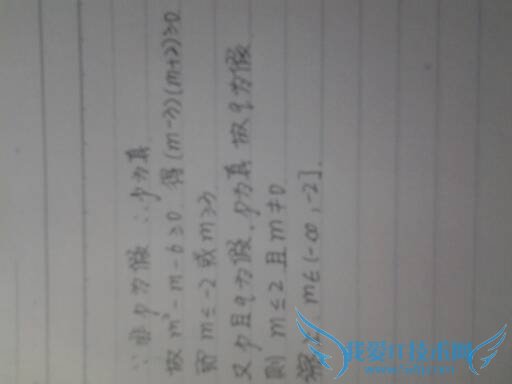 ∵非p为假 ∴p为真
故 m²-m-6≥0 得(m-3)(m+2)≥0
即 m≤-2 或 m≥3
又p且q为假, p为真 故q为假
则 m≤2 且 m≠0
m∈(-∞,-2].
我爱IT技术网